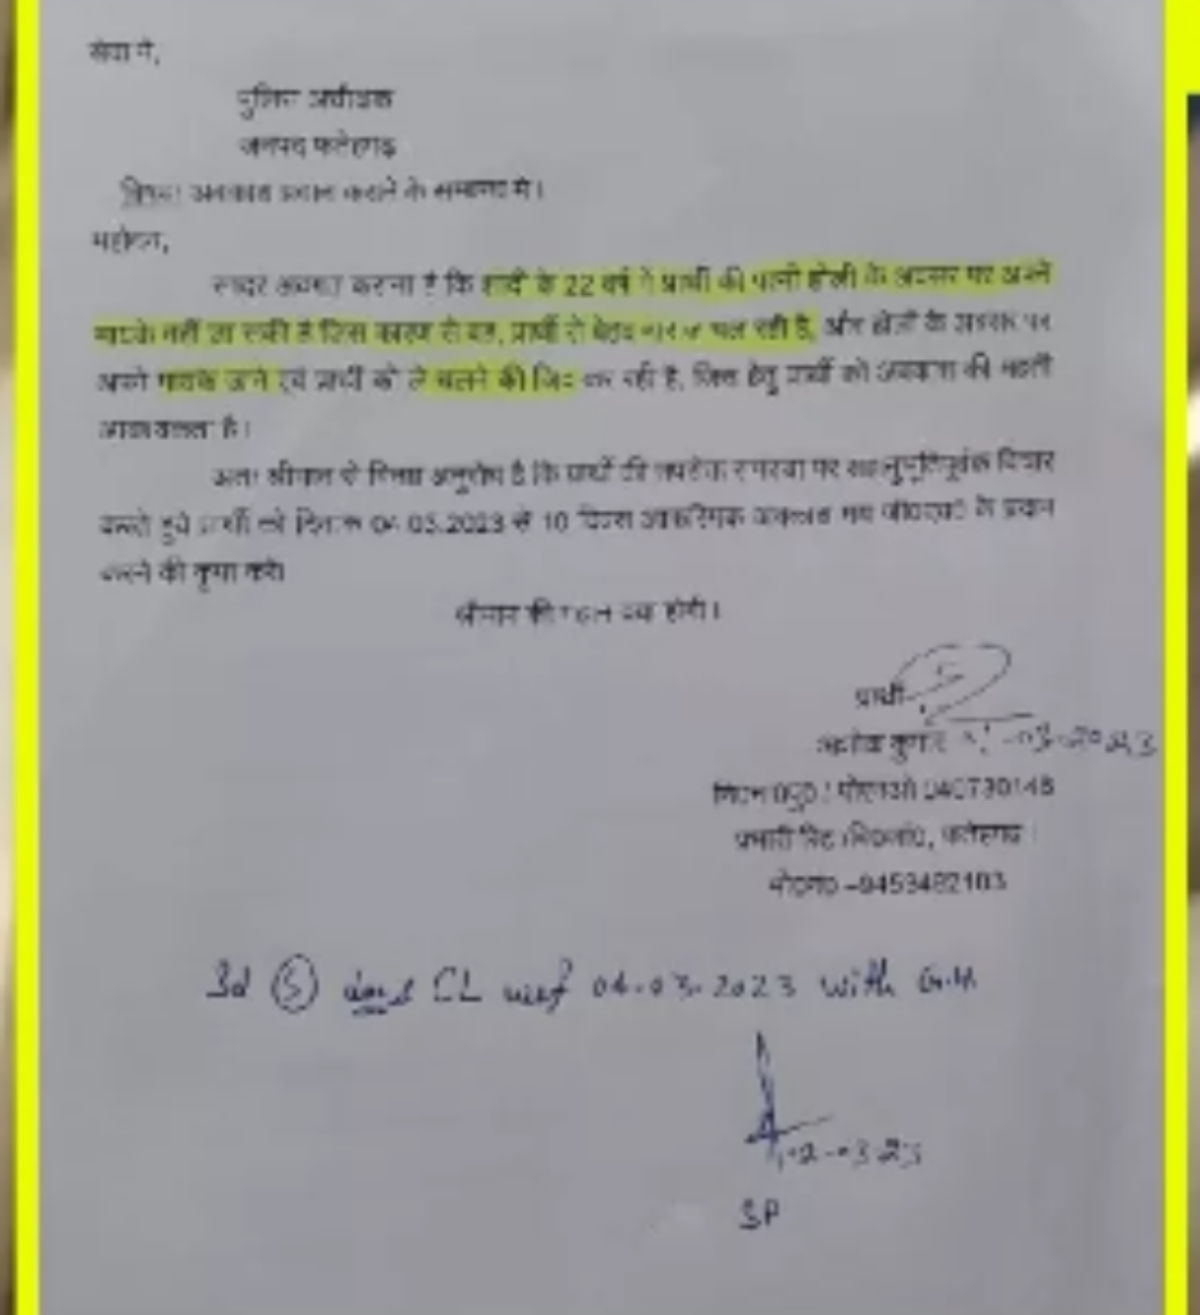 सेवा में,
पुलिस अधीक्षक
जनपद फतेहगढ़
विषयः अवकाश प्रदान कराने के सम्बन्ध में।
महोदय,
सादर अवगत कराना है कि शादी के 22 वर्ष में प्रार्थी की पत्नी होली के अवसर पर अपने
मायके नहीं जा सकी है जिस कारण से वह, प्रार्थी से बेहद नाराज चल रही है, और होली के अवसर पर
अपने मायके जाने एवं प्रार्थी को ले चलने की जिद कर रही है, जिस हेतु प्रार्थी को अवकाश की
आवश्यकता है।
अतः श्रीमान से विनम्र अनुरोध है कि प्रार्थी की उपरोक्त समस्या पर सहानुभूतिपूर्वक विचार
करते हुये प्रार्थी को दिनांक 04.03.2023 से 10 दिवस आकस्मिक अवकाश मय के प्रदान
करने की कृपा करें।
श्रीमान की महान दया होगी।
प्रार्थी
अशोक कुमार
प्रभारी फतेहगढ़।
Sd (5) days CL wef 04.03.2023 with G.H
02-03-23
SP